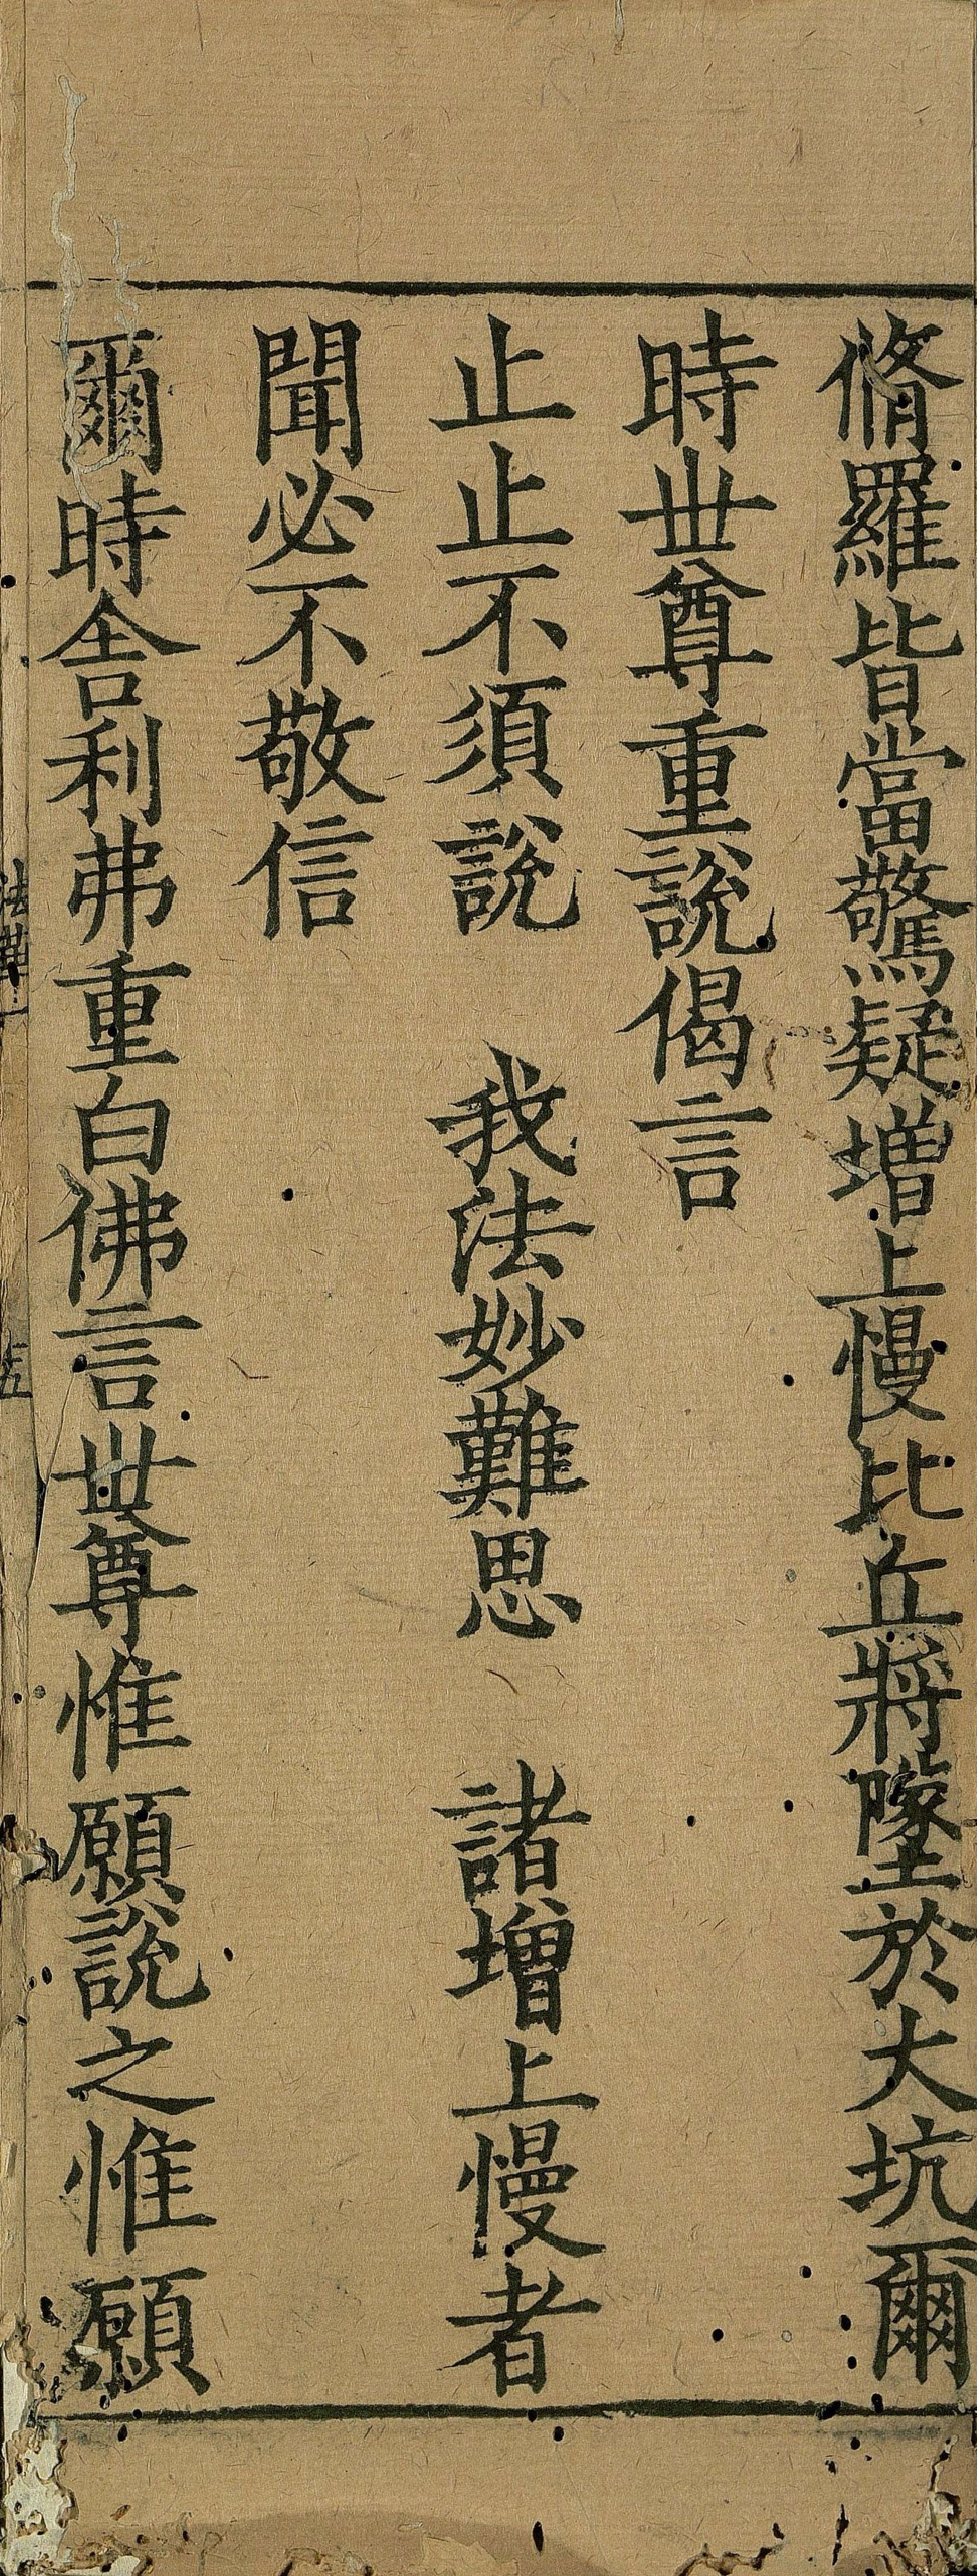 脩羅皆當驚疑增上慢比丘將墬於大坑爾
時丗尊重說偈言
止止不須說　我法妙難思　諸增上慢者
聞必不敬信
爾時舎利弗重白佛言丗尊惟願說之惟願